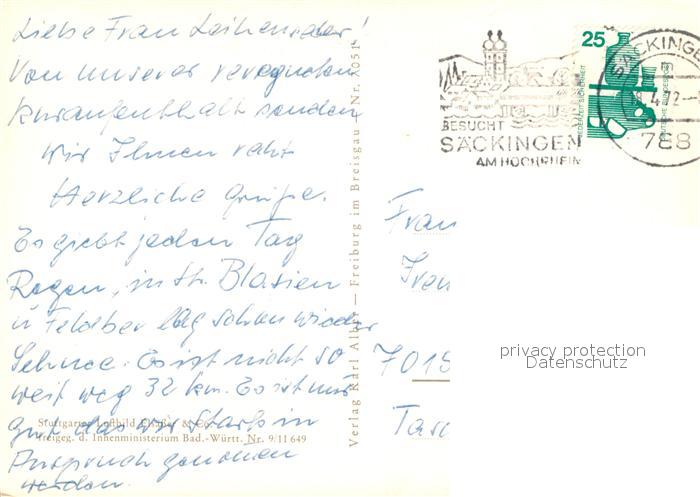 Liebe Frau Leibensder!
Von unserer veregneten
Kuraufenthalt senden
wir Ihnen recht
Herzliche Grüße.
Es giebt jeden Tag
Regen, in St. Blasien
u Feldber lag schon wieder
Schnee. Es ist nicht so
weit weg 32 km. Es ist nur
gut das wir stark in
Anspruch genomen
werden.
Stuttgarter Luftbild Elsäßer & Co.
Freigeg. d. Innenministerium Bad.-Württ. Nr. 9/11649
Verlag Karl Alber — Freiburg im Breisgau Nr. 2051
BESUCHT
SÄCKINGEN
AM HOCHRHEIN
25
JEDERZEIT SICHERHEIT
DEUTSCHE BUNDESPOST
SÄCKINGEN
4.72-
788
Frau
7015
privacy protection
Datenschutz